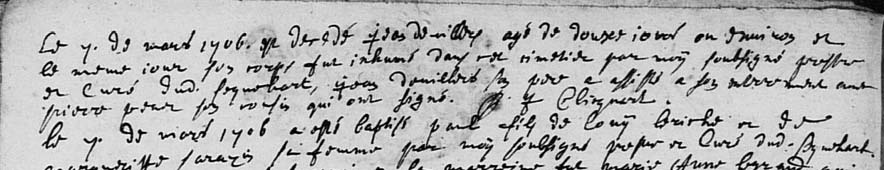 Le 7. de mars 1706. est decedé jean devillers agé de douze jours ou environ et
le meme jour son corps fut inhumé dans cet cimetier par moy soubsigné prestre
et Curé dud. Sequehart, jean devillers son pere a assisté a son enterrement avec
pierre son cousin qui ont signé.
Le 7. de mars 1706 a esté baptisé paul fils de Louis briche et de
sarazin sa femme par moy soubsigné prestre et Curé dud. Sequehart.
la marreine fut marie Anne